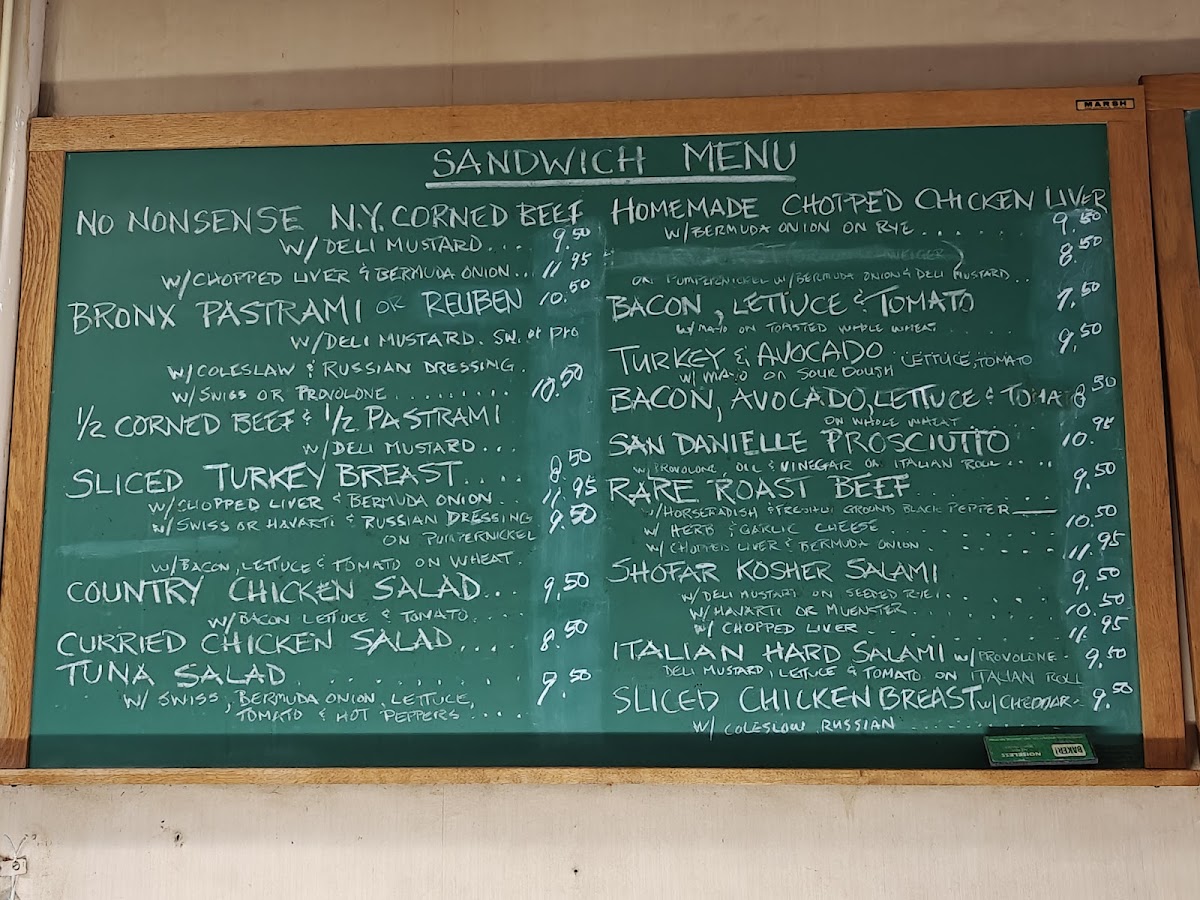 MARSH
SANDWICH MENU
NO NONSENSE N.Y. CORNED BEEF
W/ DELI MUSTARD.... 9.50
W/ CHOPPED LIVER & BERMUDA ONION... 11.95
BRONX PASTRAMI OR REUBEN 10.50
W/ DELI MUSTARD. SW. or Pro
W/ COLESLAW & RUSSIAN DRESSING.
W/ SWISS OR PROVOLONE......... 10.50
1/2 CORNED BEEF & 1/2 PASTRAMI
W/ DELI MUSTARD...
SLICED TURKEY BREAST.... 8.50
W/ CHOPPED LIVER & BERMUDA ONION.... 11.95
W/ SWISS OR HAVARTI & RUSSIAN DRESSING 9.50
ON PUMPERNICKEL
W/ BACON, LETTUCE & TOMATO ON WHEAT.
COUNTRY CHICKEN SALAD... 9.50
W/ BACON LETTUCE & TOMATO....
CURRIED CHICKEN SALAD.... 8.50
TUNA SALAD ........ 9.50
W/ SWISS, BERMUDA ONION, LETTUCE,
TOMATO & HOT PEPPERS....
HOMEMADE CHOPPED CHICKEN LIVER
W/ BERMUDA ONION ON RYE...... 9.50
8.50
ON PUMPERNICKEL W/ BERMUDA ONION & DELI MUSTARD...
BACON, LETTUCE & TOMATO 7.50
W/ MAYO ON TOASTED WHOLE WHEAT......
TURKEY & AVOCADO LETTUCE, TOMATO 9.50
W/ MAYO ON SOURDOUGH
BACON, AVOCADO, LETTUCE & TOMATO 8.50
ON WHOLE WHEAT....
SAN DANIELLE PROSCIUTTO 10.95
W/ PROVOLONE, OIL & VINEGAR ON ITALIAN ROLL....
RARE ROAST BEEF.......... 9.50
W/ HORSERADISH & FRESHLY GROUND BLACK PEPPER
W/ HERB & GARLIC CHEESE......... 10.50
W/ CHOPPED LIVER & BERMUDA ONION......... 11.95
SHOFAR KOSHER SALAMI
W/ DELI MUSTARD ON SEEDED RYE....... 9.50
W/ HAVARTI OR MUENSTER......... 10.50
W/ CHOPPED LIVER......... 11.95
ITALIAN HARD SALAMI W/ PROVOLONE - 9.50
DELI MUSTARD, LETTUCE & TOMATO ON ITALIAN ROLL
SLICED CHICKEN BREAST W/ CHEDDAR - 9.50
W/ COLESLOW, RUSSIAN .........
BAKER!
NOISELESS